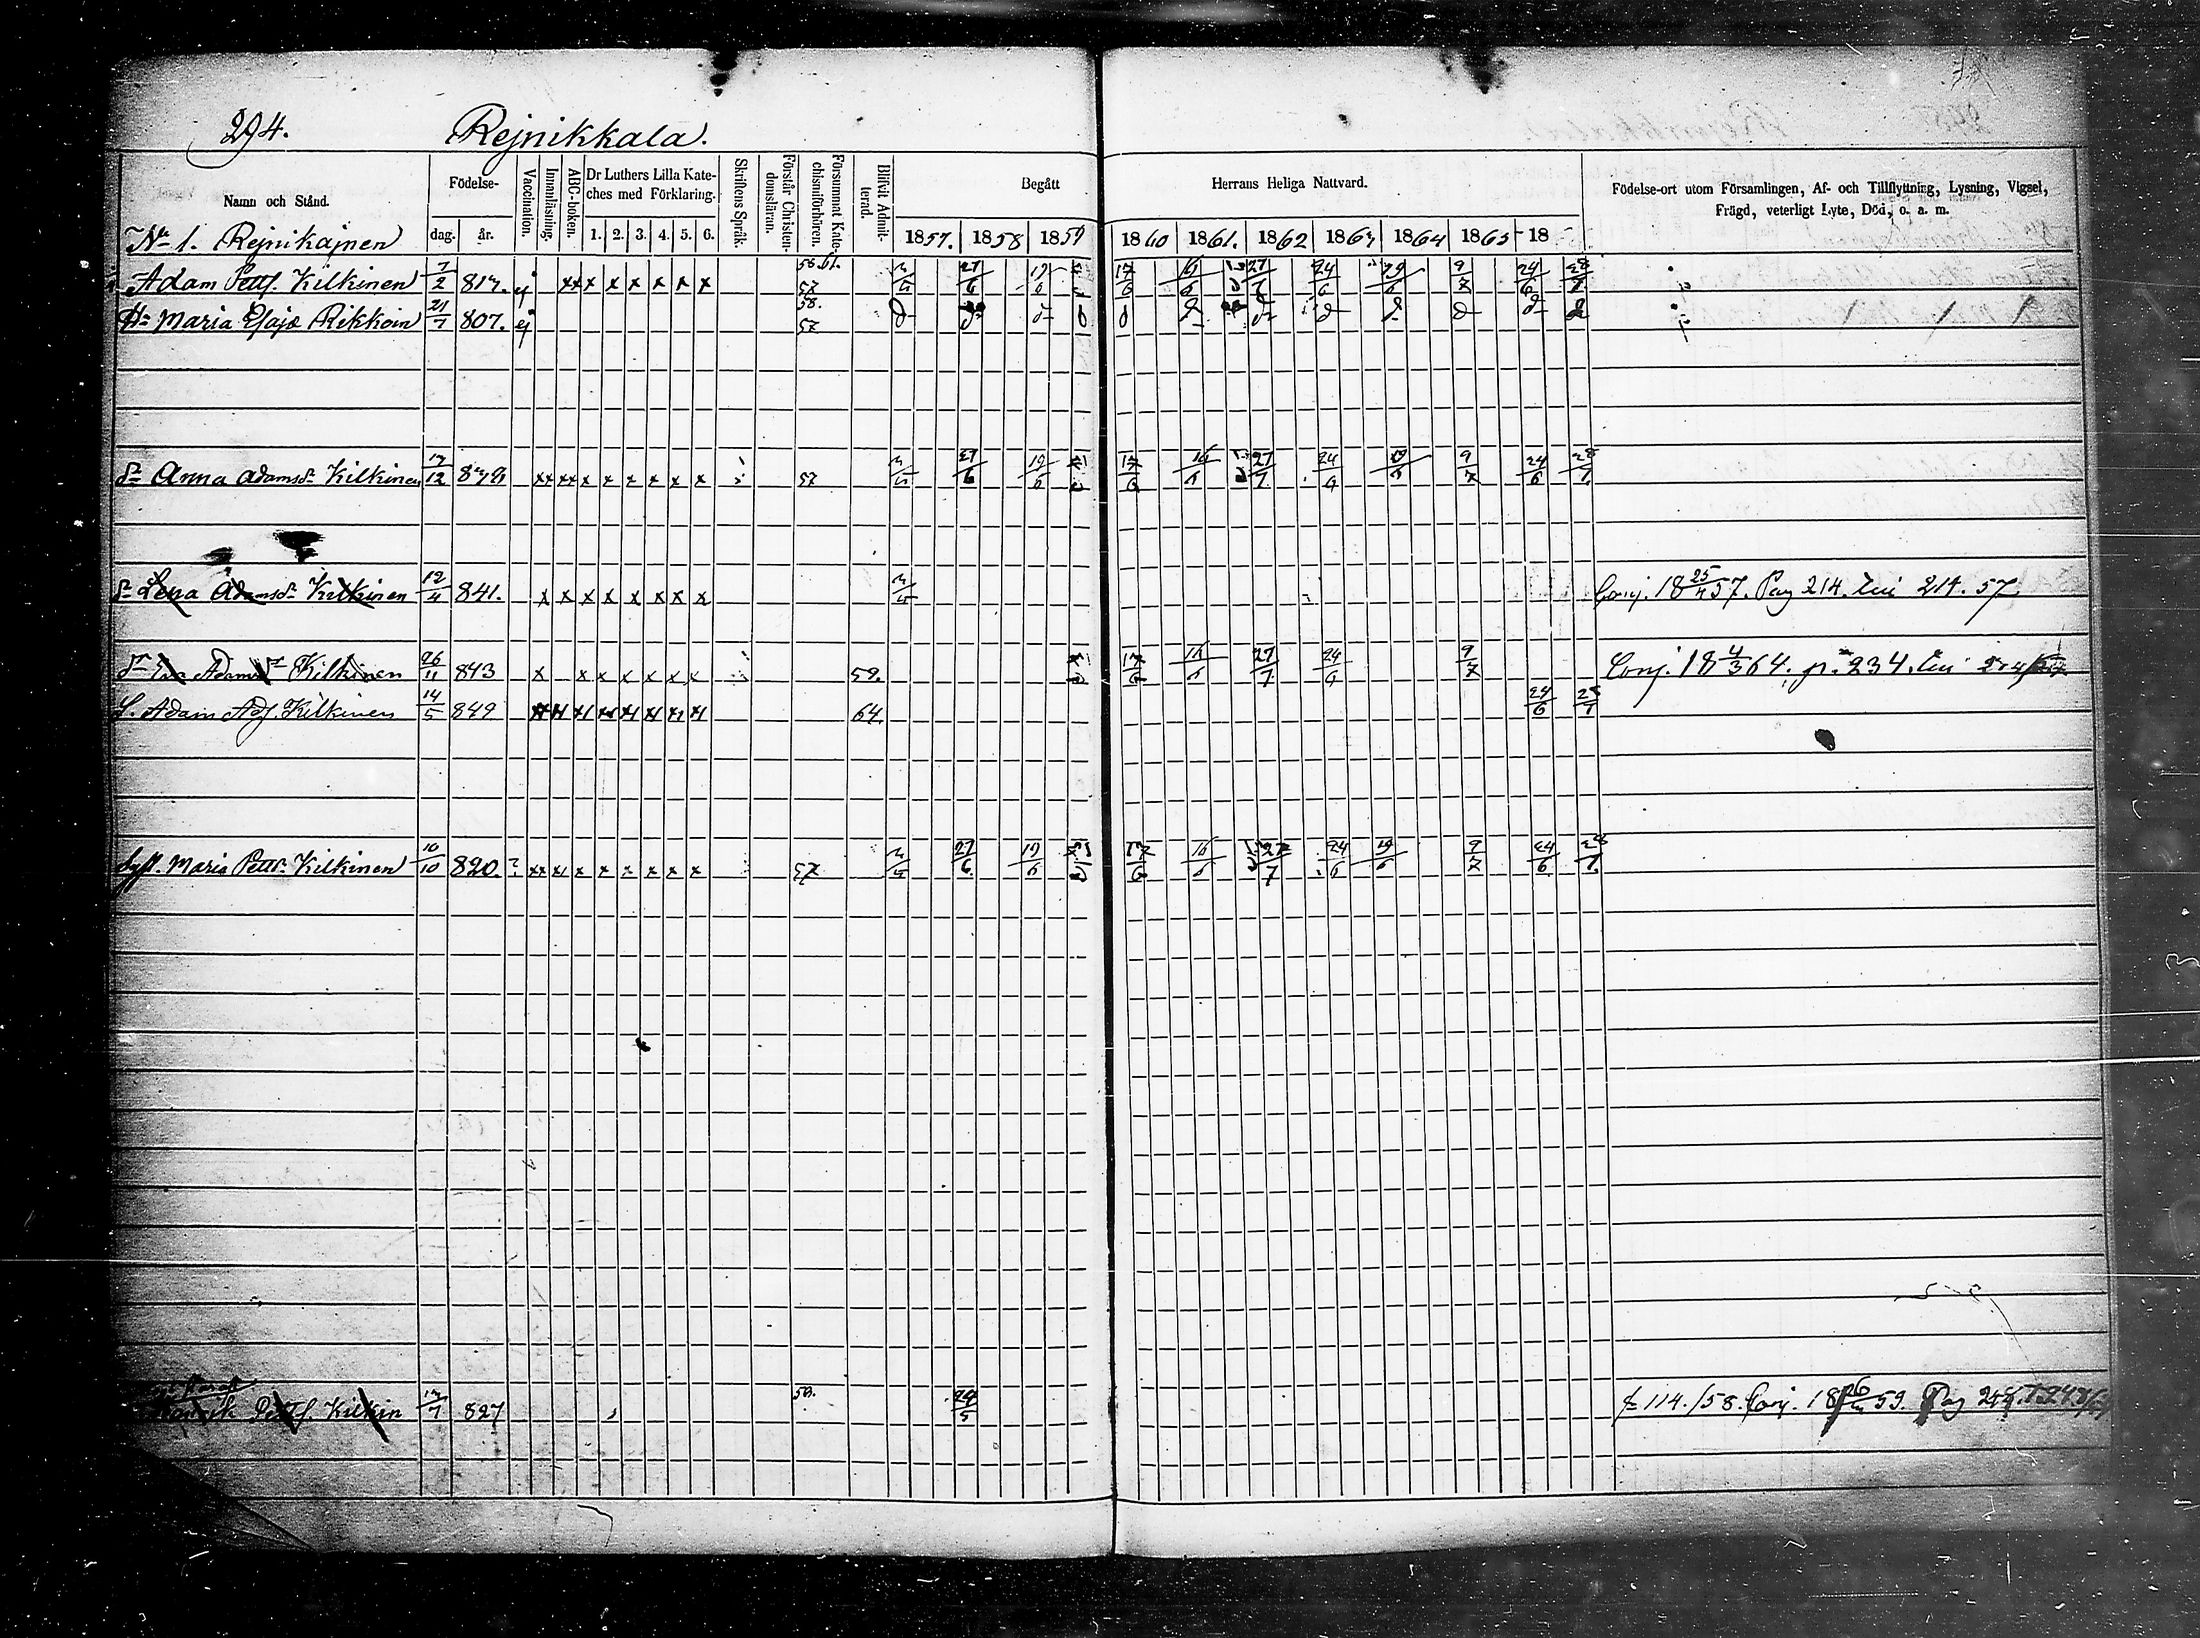 294. Rejnikkala.
Namn och Stånd. Födelse- dag. år. Vaccination. Innanläsning. ABC-boken. Dr Luthers Lilla Kateches med Förklaring. 1. 2. 3. 4. 5. 6. Skriftens Språk. Förstår Christendomsläran. Försummat Katechismiförhören. Blifvit Admitterad. Begått Herrans Heliga Nattvard. Födelse-ort utom Församlingen, Af- och Tillflyttning, Lysning, Vigsel,
Frägd, veterligt Lyte, Död, o. a. m.
No 1. Rejnikajnen 1857. 1858 1859 1860 1861. 1862 1863 1864 1865 18
Adam Pettf. Kilkinen 7/2 817. ej x x x x x x x x 58. 61. 57 27/6 19/6 17/6 16/6 27/7 24/6 19/6 9/7 24/6 28/7
Hu Maria Esajæ Rikkoin 21/7 807. ej 58. 57 d d d d d d d d d d
dr Anna Adamsdr Kilkinen 17/12 xx xx x x x x x x 57 27/6 19/6 17/6 16/6 27/7 24/6 19/6 9/7 24/6 28/7
dr Lena Adamsdr Kilkinen 12/4 841. x x x x x x x x Conj. 18 25/4 57. Pag 214. 57
dr Adamsdr Kilkinen 26/11 843 x x x x x x x 59. 17/6 16/6 27/7 24/6 9/7 Conj. 18 4/3 64. p. 234.
S. Adam Adf. Kilkinen 14/5 849 64. 24/6 28/7
Syst. Maria Pettdr Kilkinen 10/10 820. ? xx x x x x x x x 57 27/6 19/6 17/6 16/6 27/7 24/6 19/6 9/7 24/6 28/7
Henrik Pettf. Kilkin 827 59. 24/5 fr 114./58. Conj. 18 59. Pag